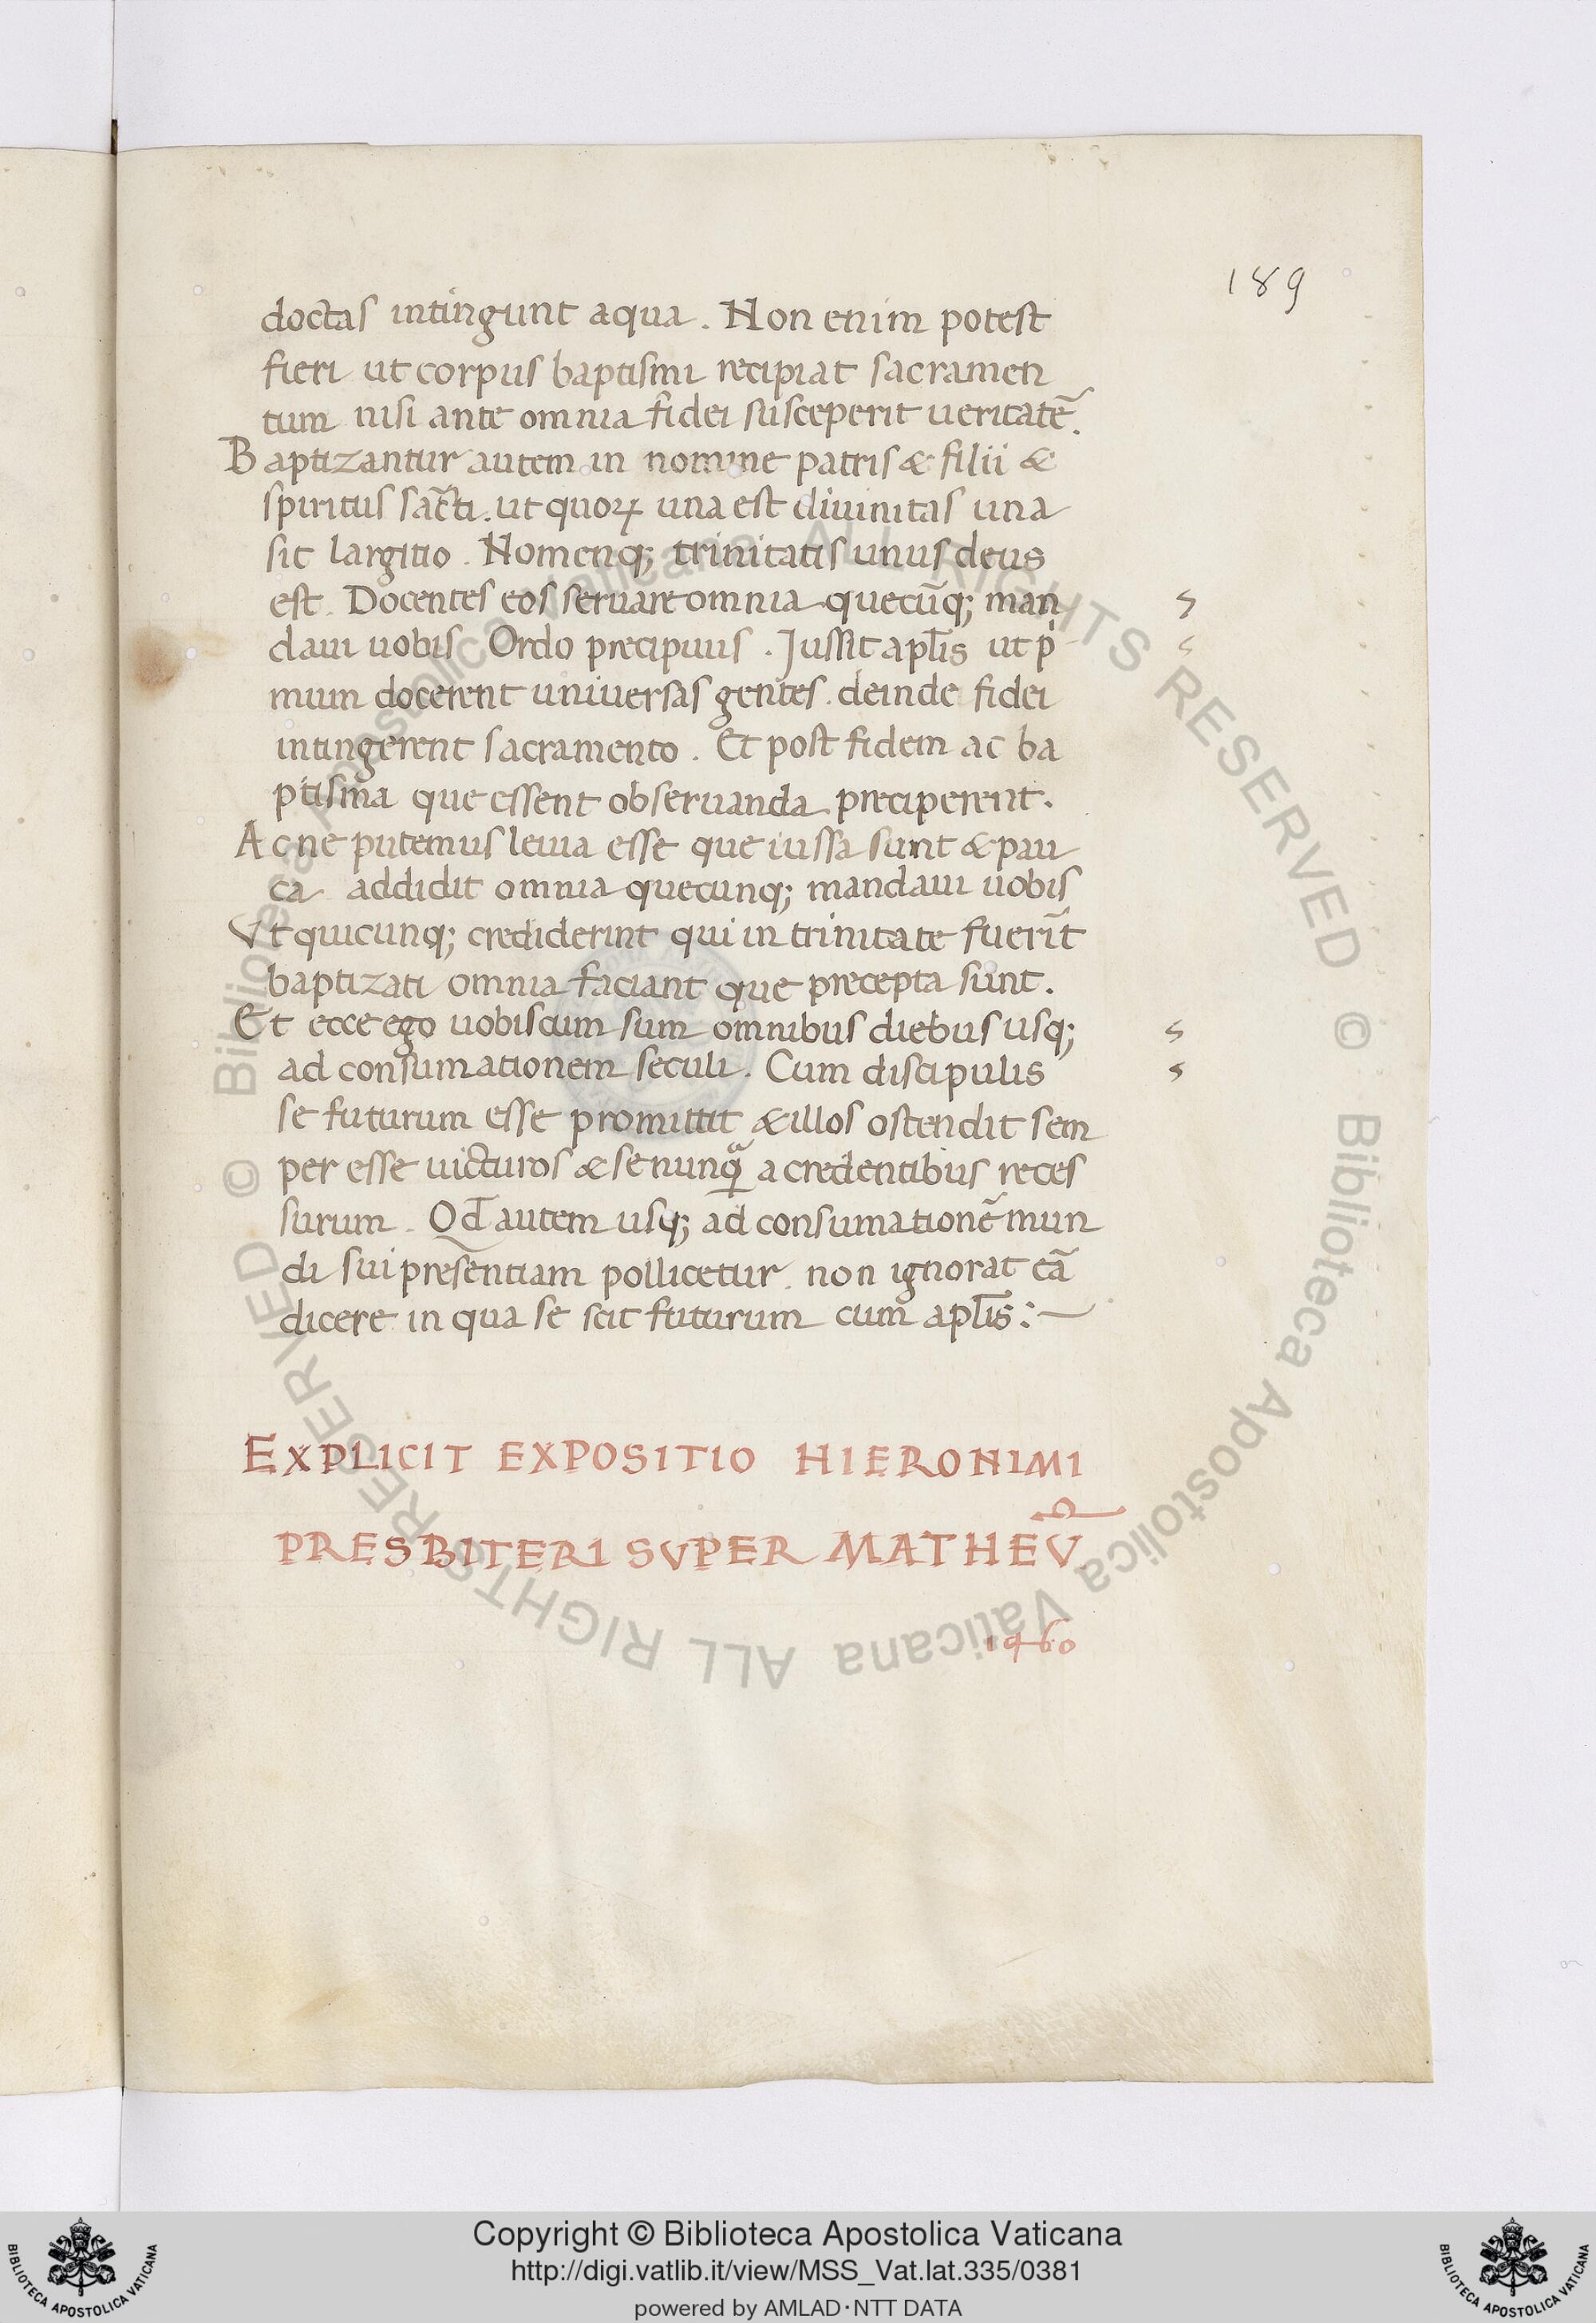 189
doctas intingunt aqua. Non enim potest
fieri ut corpus baptismi recipiat sacramen
tum nisi ante omnia fidei susceperit ueritatē.
Baptizantur autem in nomine patris & filii &
spiritus sācti. ut quoꝝ una est diuinitas una
sit largitio. Nomenq; trinitatis unus deus
est. Docentes eos seruare omnia quecūq; man
daui uobis. Ordo precipuus. Jussit apl̄is ut p̍
mum docerent uniuersas gentes. deinde fidei
intingerent sacramento. Et post fidem ac ba
ptisma que essent obseruanda preciperent.
Ac ne putemus leuia esse que iussa sunt & pau
ca addidit omnia quecunq; mandaui uobis
Vt quicunq; crediderint qui in trinitate fuerīt
baptizati omnia faciant que precepta sunt.
Et ecce ego uobiscum sum omnibus diebus usq;
ad consumationem seculi. Cum discipulis
se futurum esse promittit & illos ostendit sem
per esse uicturos & se nunqᷓ a credentibus reces
surum. Qd̄ autem usq; ad consumationē mun
di sui presentiam pollicetur. non ignorat eā
dicere in qua se scit futurum cum apl̄is:—
EXPLICIT EXPOSITIO HIERONIMI
PRESBITERI SVPER MATHEV̄
1460
© Biblioteca Apostolica Vaticana ALL RIGHTS RESERVED © Biblioteca Apostolica Vaticana ALL RIGHTS RESERVED
Copyright © Biblioteca Apostolica Vaticana
http://digi.vatlib.it/view/MSS_Vat.lat.335/0381
powered by AMLAD·NTT DATA
BIBLIOTECA APOSTOLICA VATICANA
BIBLIOTECA APOSTOLICA VATICANA